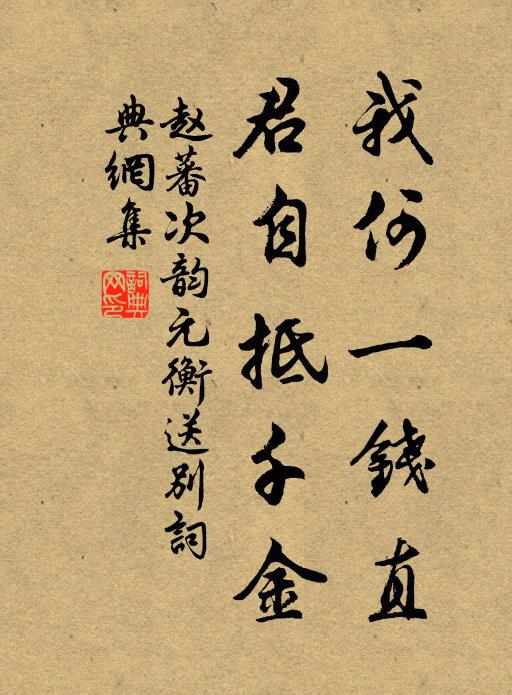 我何一錢直
君自抵千金
赵蕃次韵元衡送别詞
典網集
詞典
网印